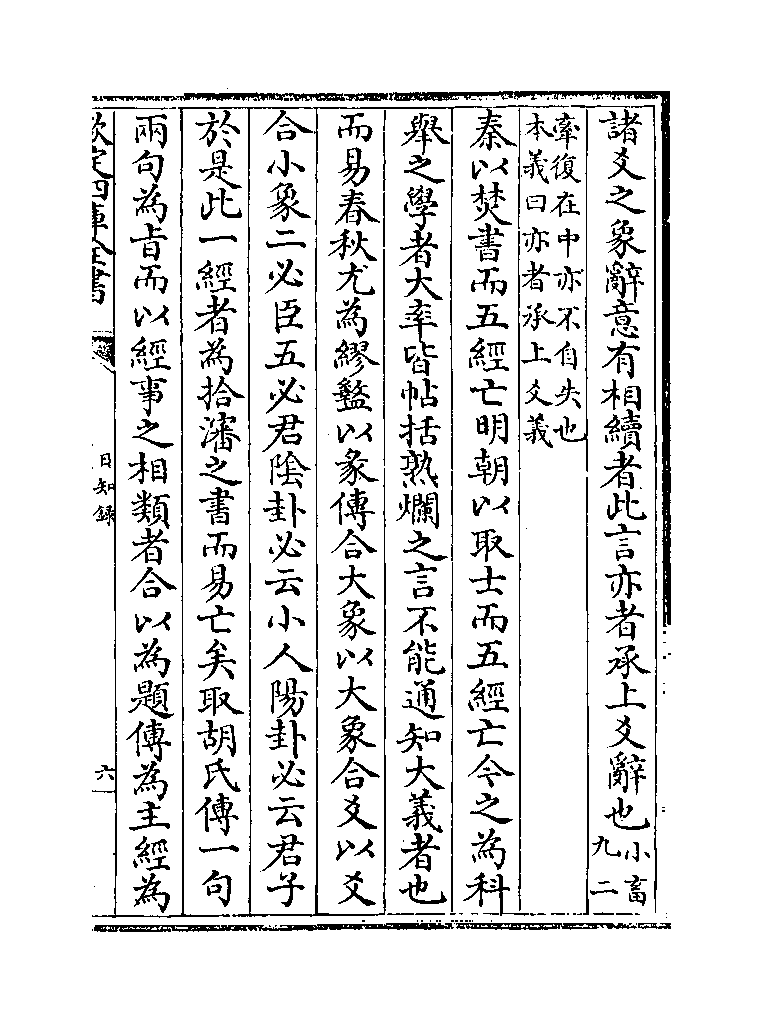 諸爻之象辭意有相續者此言亦者承上爻辭也小畜九二
牽復在中亦不自失也
本義曰亦者承上爻義
秦以焚書而五經亡明朝以取士而五經亡今之為科
舉之學者大率皆帖括熟爛之言不能通知大義者也
而易春秋尤為繆盭以彖傳合大象以大象合爻以爻
合小象二必臣五必君陰卦必云小人陽卦必云君子
於是此一經者為拾瀋之書而易亡矣取胡氏傳一句
兩句為㫖而以經事之相類者合以為題傳為主經為
欽定四庫全書
日知録
六